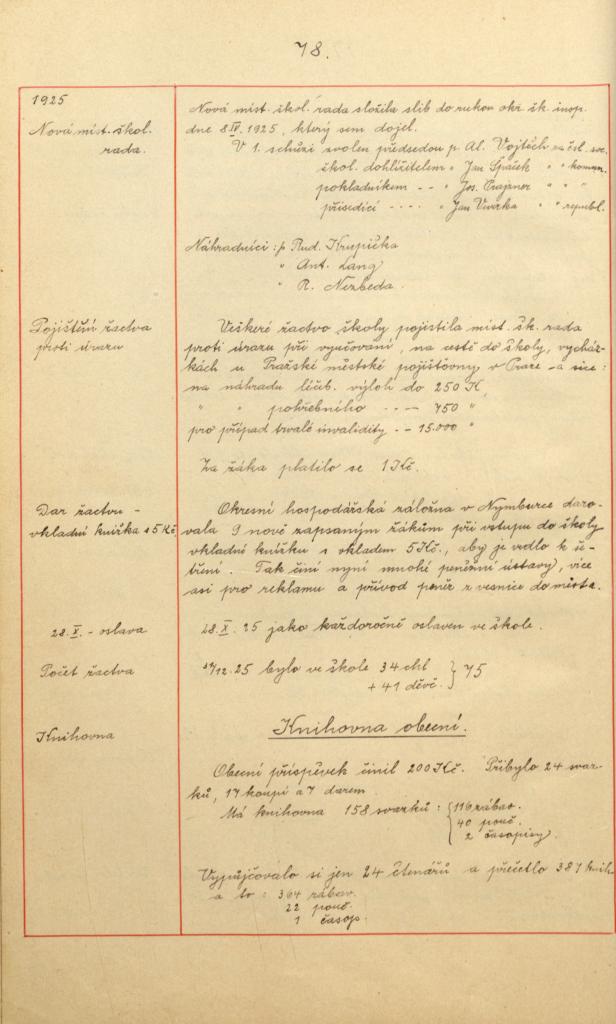 78.
1925
Nová míst. škol. rada.
Nová míst. škol. rada složila slib do rukou okr. šk. insp.
dne 8.IV. 1925, který sem dojel.
V 1. schůzi zvolen předsedou p. Al. Vojtěch za čsl. soc.
škol. dohlížitelem " Jan Špaček " " komun.
pokladníkem - - " Jos. " " "
přísedící - - - - " Jan " " republ.
Náhradníci : p. Rud. Krupička
" Ant. Lang
" R. Nezbeda.
Pojištění žactva
proti úrazu
Veškeré žactvo školy pojistila míst. šk. rada
proti úrazu při vyučování, na cestě do školy, vycház-
kách u Pražské městské pojišťovny v Praze a sice:
na náhradu léčeb. výloh do 250 K,
" " pohřebného - - - 750 "
pro případ trvalé invalidity - - 15.000 "
Za žáka platilo se 1 Kč.
Dar žactvu -
vkladní knížka s 5 Kč
Okresní hospodářská záložna v Nymburce daro-
vala 9 nově zapsaným žákům při vstupu do školy
vkladní knížku s vkladem 5 Kč., aby je vedlo k še-
tření. Tak činí nyní mnohé peněžní ústavy, více
asi pro reklamu a přívod peněz z vesnice do města.
28. X. - oslava
28. X. 25 jako každoročně oslaven ve škole.
Počet žactva
31/12. 25 bylo ve škole 34 chl
+ 41 děvč. } 75
Knihovna
Knihovna obecní.
Obecní příspěvek činil 200 Kč. Přibylo 24 svaz-
ků, 17 koupí a 7 darem.
Má knihovna 158 svazků : { 116 zábav.
40 pouč.
2 časopisy.
Vypůjčovalo si jen 24 čtenářů a přečetlo 387 knih
a to : 364 zábav.
22 pouč.
1 časop.